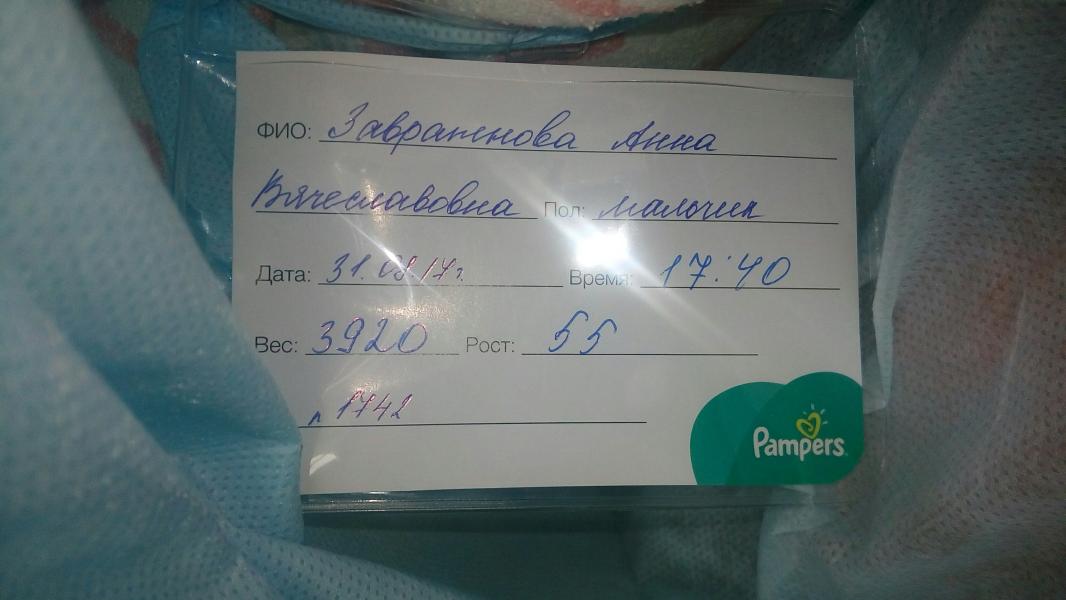 ФИО: Завражнова Анна
Вячеславовна Пол: мальчик
Дата: 31.08.17г. Время: 17:40
Вес: 3920 Рост: 55
1742
Pampers